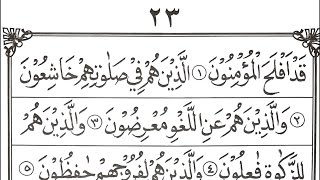 ٢٣
قَدْ أَفْلَحَ الْمُؤْمِنُوْنَ ۝١ الَّذِيْنَ هُمْ فِيْ صَلَاتِهِمْ خَاشِعُوْنَ
۝٢ وَالَّذِيْنَ هُمْ عَنِ اللَّغْوِ مُعْرِضُوْنَ ۝٣ وَالَّذِيْنَ هُمْ
لِلزَّكٰوةِ فٰعِلُوْنَ ۝٤ وَالَّذِيْنَ هُمْ لِفُرُوْجِهِمْ حٰفِظُوْنَ ۝٥